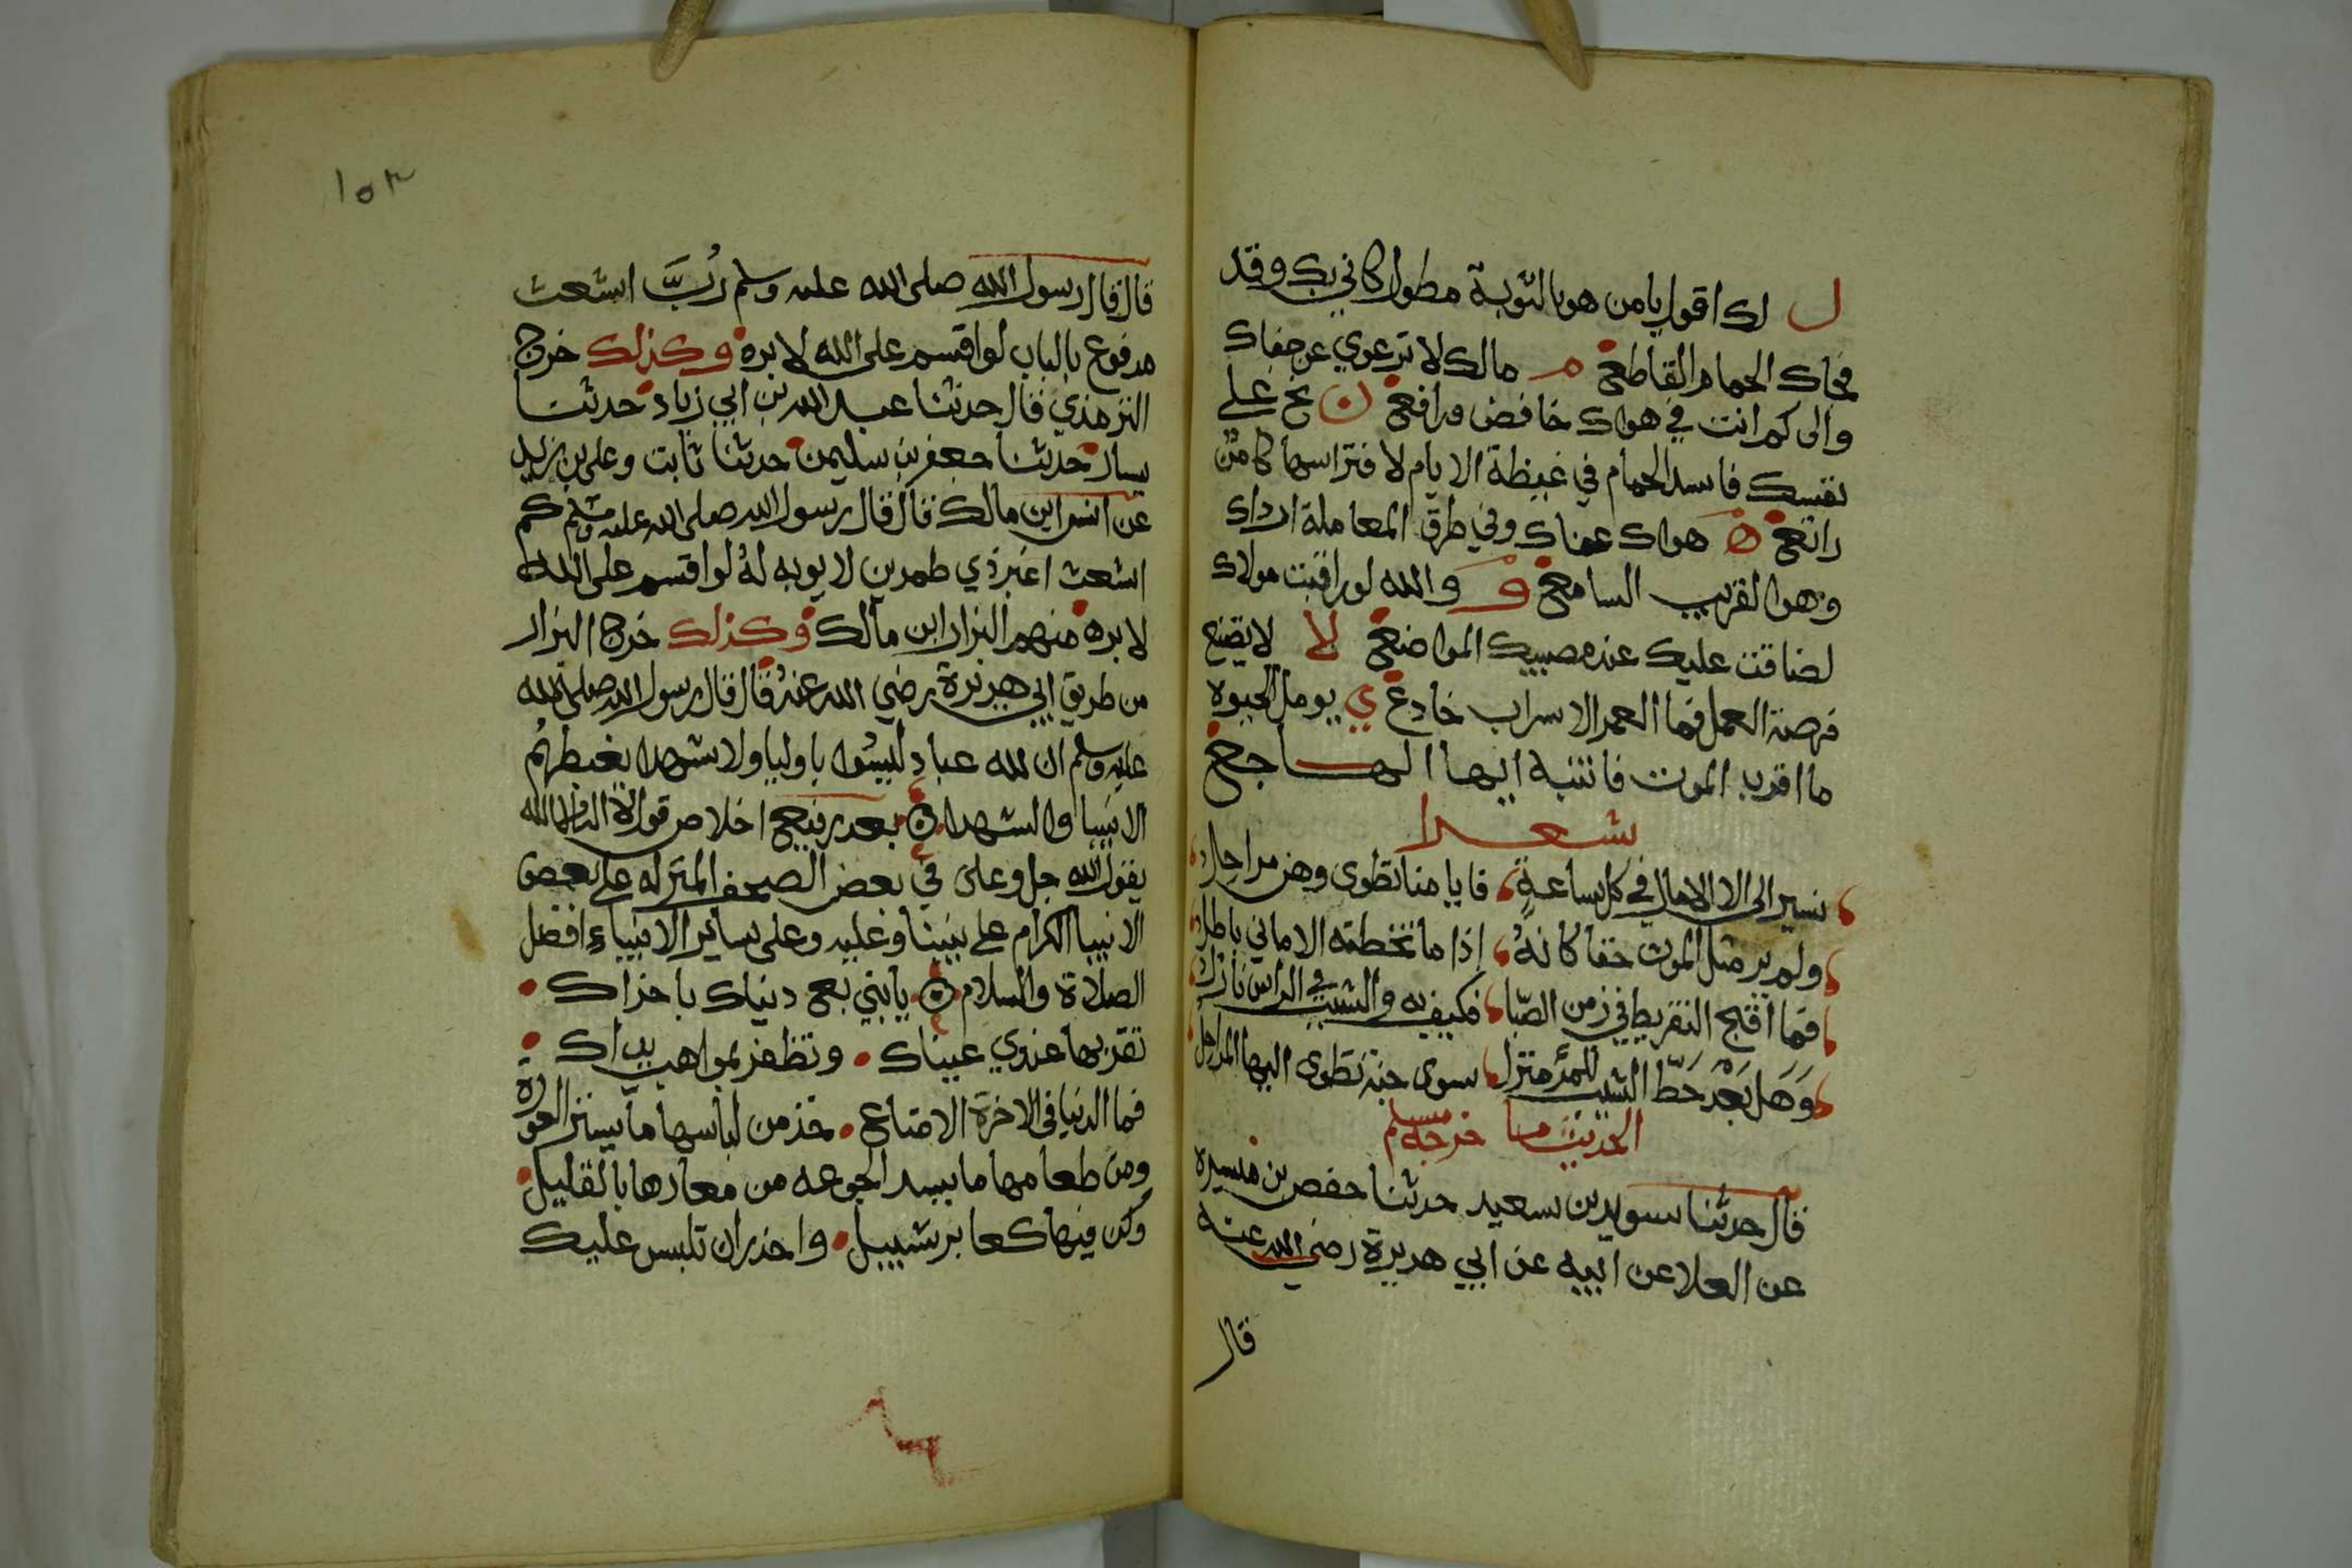 ل لك اقول يا من هو بالتوبة مطول كاني بك وقد
فجاك الحمام القاطع م مالك لا ترعوي عن جفاك
والى كم انت في هواك خافض ورافع ن نح على
نفسك فاسد الحمام في غيظة الايام لافتراسها كامن
راتع ه هواك عماك وفي طرق المعاملة ارداك
وهو القريب السامع و والله لو راقبت مولاك
لضاقت عليك عند مصيبك المواضع لا لا يضيع
فرصة العمل فما العمر الا سراب خادع ي يومل الحيوة
ما اقرب الموت فانتبه ايها الهاجع
شعرا
نسير الى الا الامال في كل ساعة فايامنا تطوى وهن مراحل
ولم ير مثل الموت حقا كانه اذا ما تخطته الاماني باطل
فما اقبح التفريط في زمن الصبا فكيف به والشيب في الراس نازل
وهل بعد حط الشيب للمرء منزل سوى جنة تطوى اليها المراحل
الحديث ما خرجه مسلم
قال حدثنا سويد بن سعيد حدثنا حفص بن ميسرة
عن العلا عن ابيه عن ابي هريرة رضي الله عنه
قال
١٥٣
قال قال رسول الله صلى الله عليه وسلم رب اشعث
مدفوع بالباب لو اقسم على الله لابره وكذلك خرج
الترمذي قال حدثنا عبد الله بن ابي زياد حدثنا
يسار حدثنا جعفر بن سليمن حدثنا ثابت وعلي بن زيد
عن انس ابن مالك قال قال رسول الله صلى الله عليه وسلم كم
اشعث اغبر ذي طمرين لا يوبه له لو اقسم على الله
لابره منهم البزار ابن مالك وكذلك خرج البزار
من طريق ابي هريرة رضي الله عنه قال قال رسول الله صلى الله
عليه وسلم ان لله عباد ليسوا باوليا ولا شهدا يغبطهم
الانبيا والشهدا بعد رفيع اخلاص قولا الا الله
يقول الله جل وعلى في بعض الصحف المنزله على بعض
الانبيا الكرام على نبينا وعليه وعلى سائر الانبياء افضل
الصلاة والسلام يا بني بع دنياك باخراك
تقر بها غدوي عيناك وتظفر بمواهب يداك
فما الدنيا في الاخرة الا متاع خذ من لباسها ما يستر العورة
ومن طعامها ما يسد الجوعه من معارها بالقليل
وكن فيها كعابر سبيل واحذر ان تلبس عليك